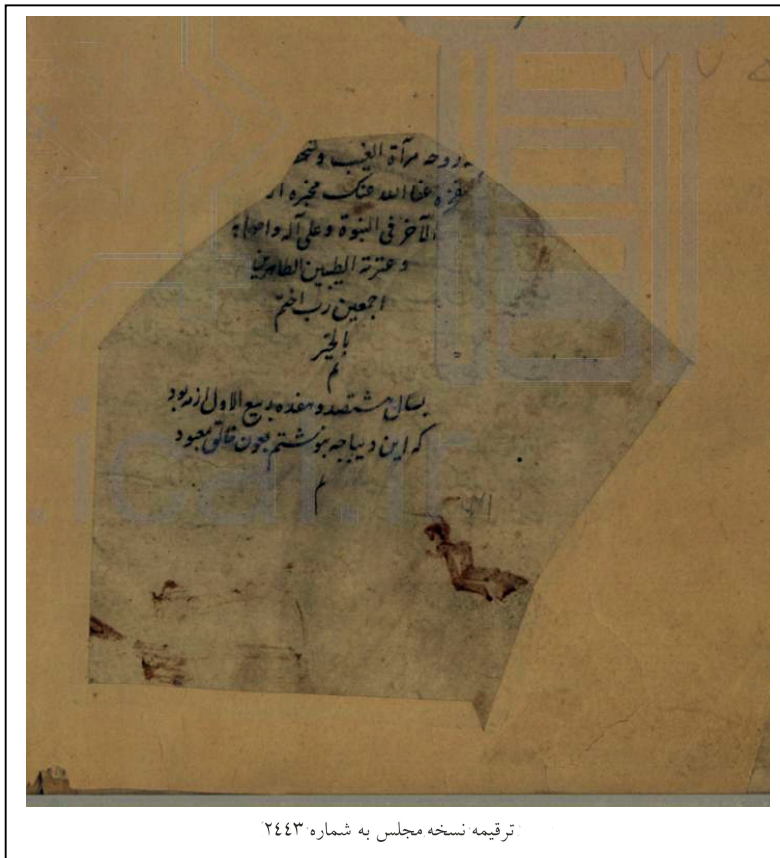 روحه مرآة الغیب و
عفا الله عنک مخبره
الآخر فی النبوة و علی آله و اصحابه
و عترته الطیبین الطاهرین
اجمعین رب اختم
بالخیر
م
بسال هشتصد و هفده ربیع الاول از مه بود
که این دیباجه بنوشتم بعون خالق معبود
م
ترقیمه نسخه مجلس به شماره ٢٤٤٣